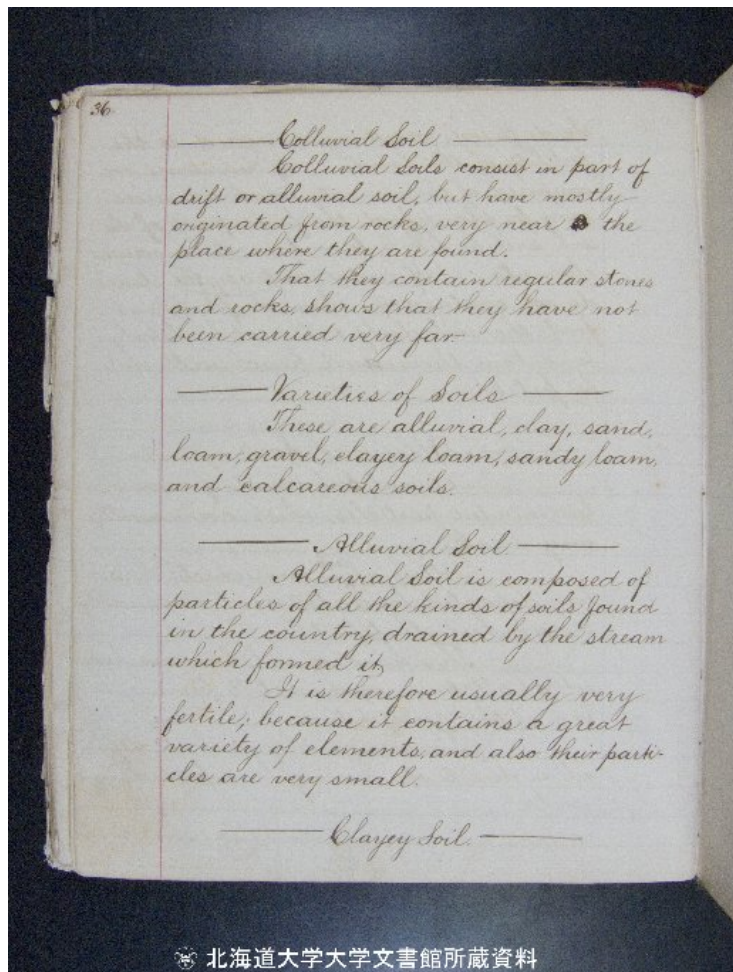 36
Colluvial Soil
Colluvial Soils consist in part of
drift or alluvial soil, but have mostly
originated from rocks, very near the
place where they are found.
That they contain regular stones
and rocks, shows that they have not
been carried very far
Varieties of Soils
These are alluvial, clay, sand,
loam, gravel, clayey loam, sandy loam,
and calcareous soils.
Alluvial Soil
Alluvial Soil is composed of
particles of all the kinds of soils found
in the country, drained by the stream
which formed it,
It is therefore usually very
fertile; because it contains a great
variety of elements, and also their parti-
cles are very small.
Clayey Soil.
北海道大学大学文書館所蔵資料